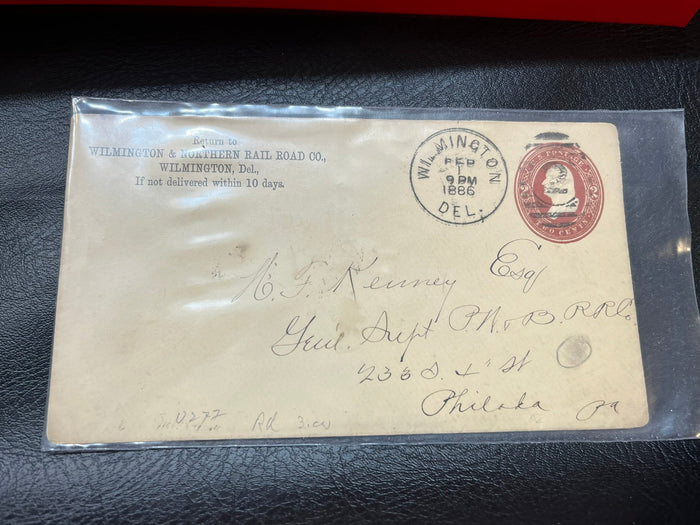 Return to
WILMINGTON & NORTHERN RAIL ROAD CO.,
WILMINGTON, Del.,
If not delivered within 10 days.
WILMINGTON
FEB
1
9 PM
1886
DEL.
U.S. POSTAGE
TWO CENTS
H. F. Kenney Esq
Genl. Supt P.W. & B. R.R. Co.
233 S. 4" St
Philada Pa
U272
Rd 3.00